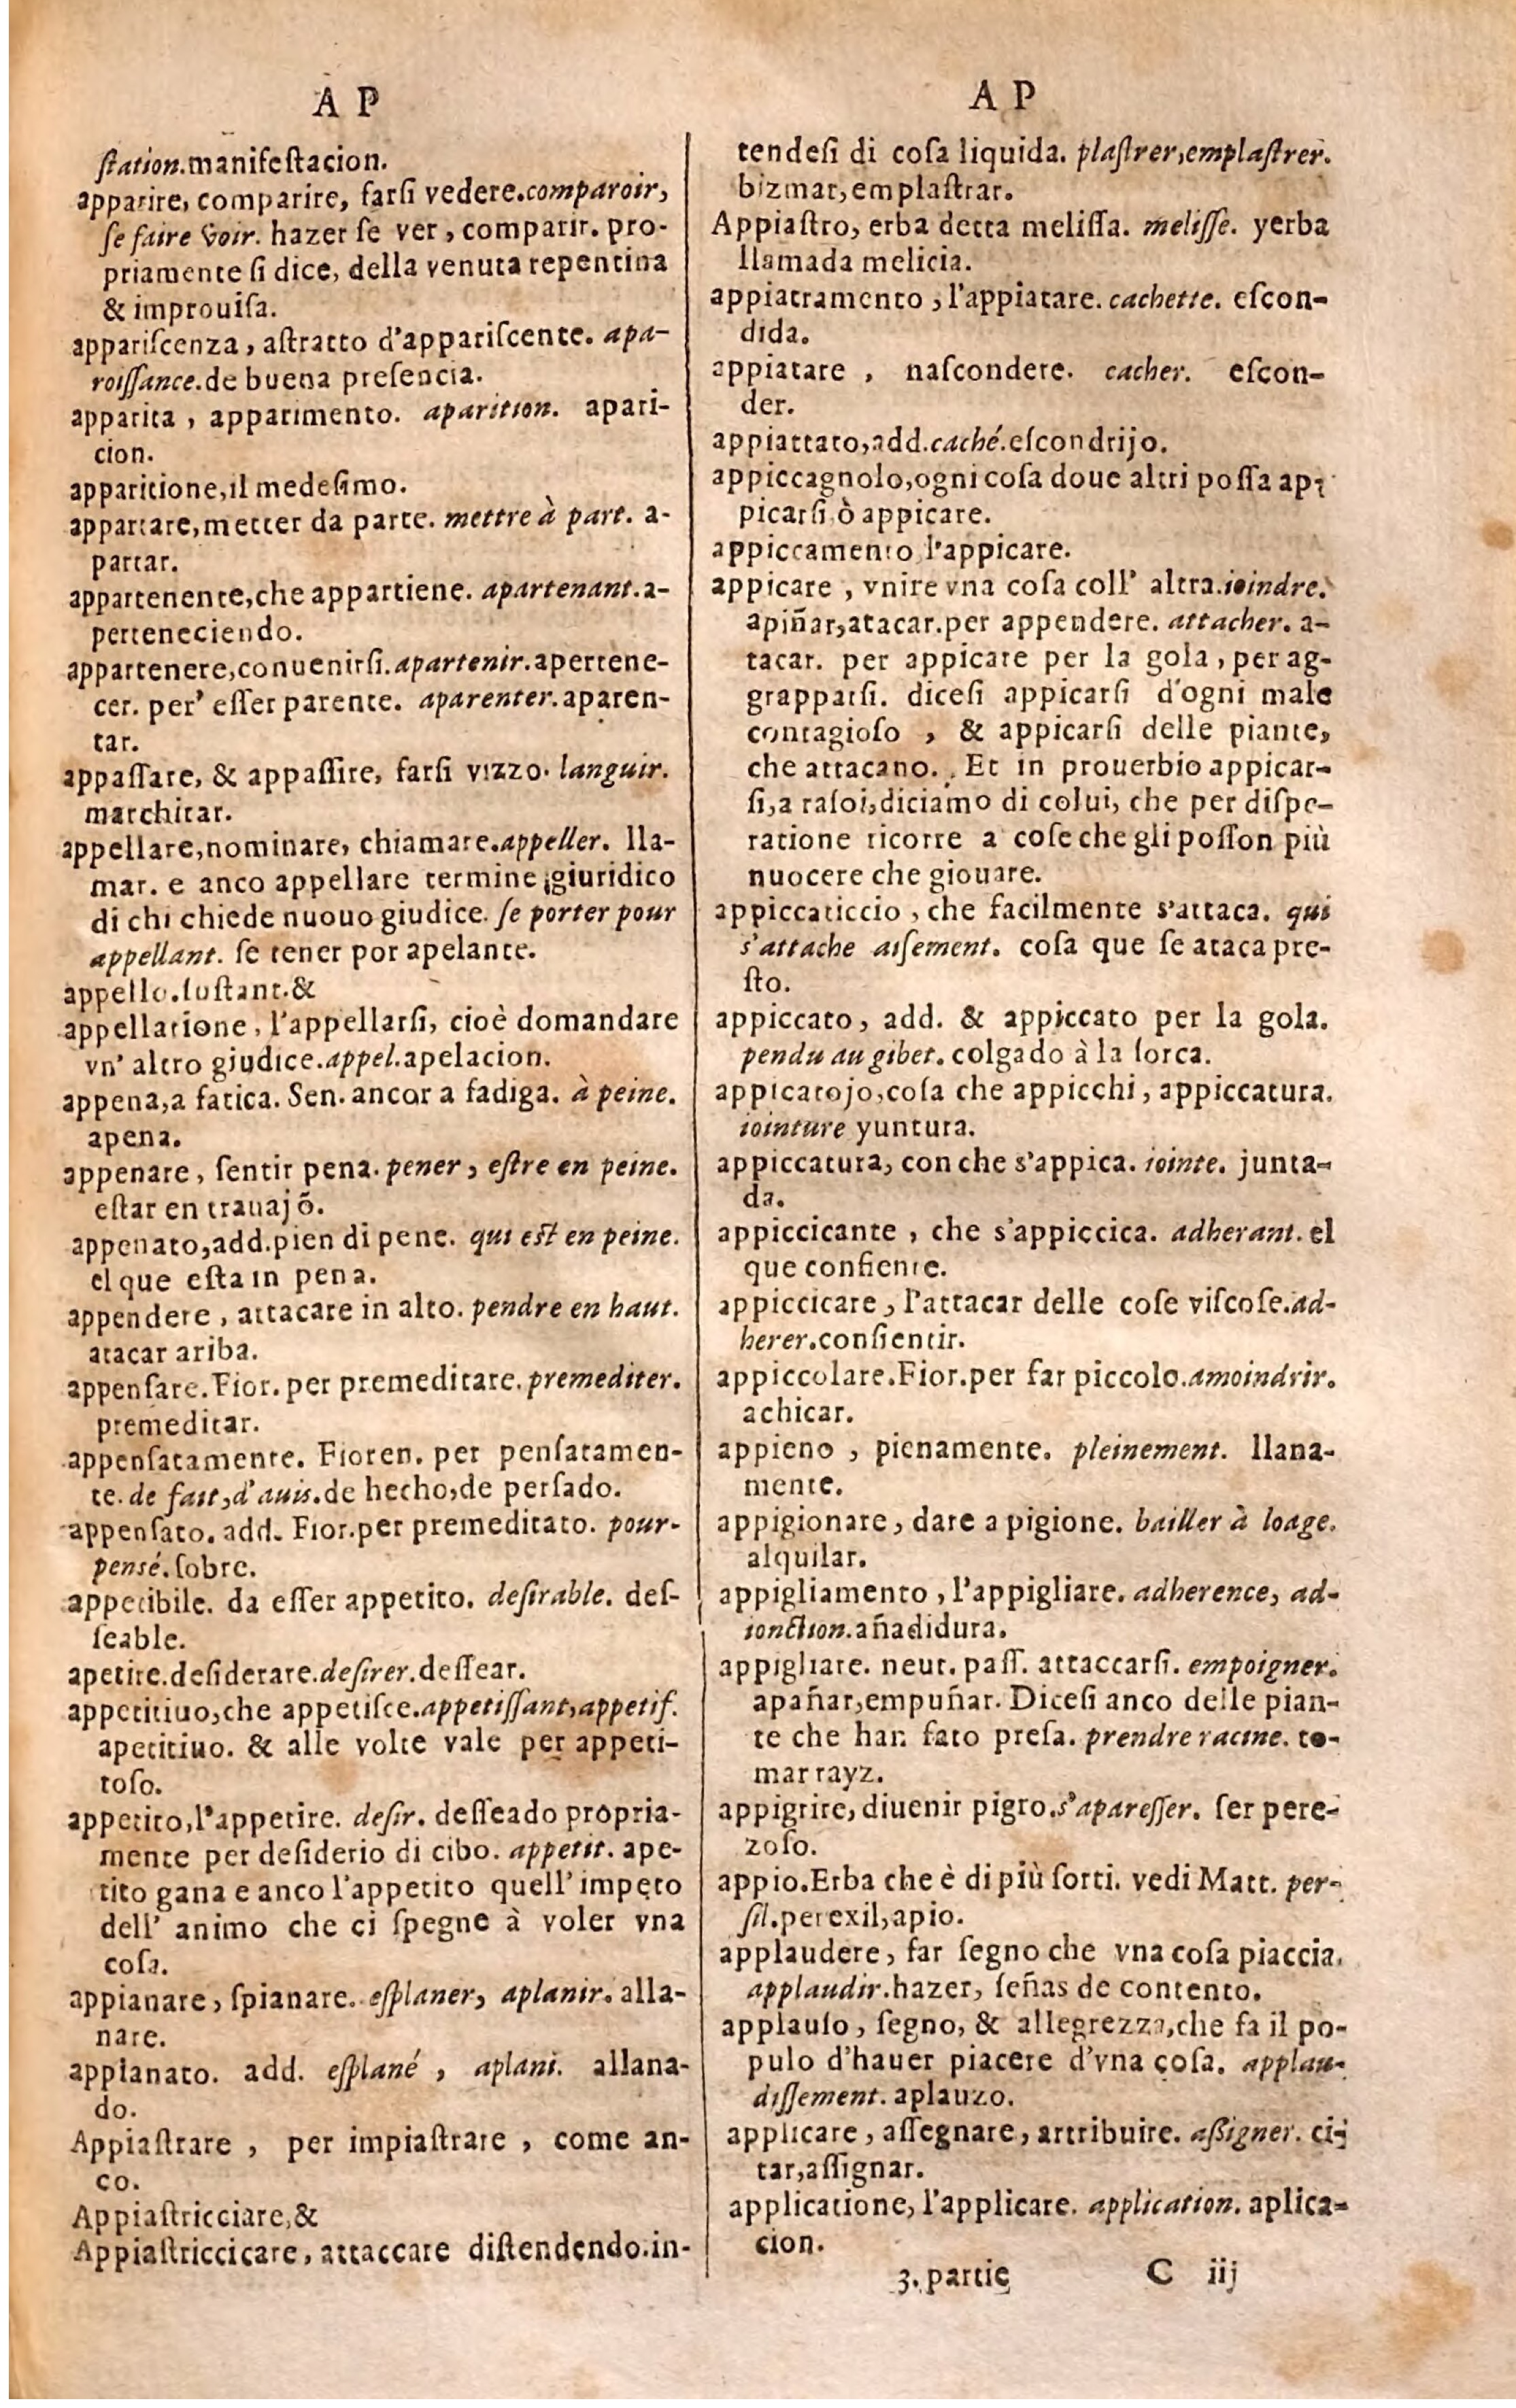 A P
ſtation.manifeſtacion.
apparire, comparire, farſi vedere.comparoir,
ſe faire voir. hazer ſe ver, comparir. pro-
priamente ſi dice, della venuta repentina
& improuiſa.
appariſcenza, aſtratto d'appariſcente. apa-
roiſſance.de buena preſencia.
apparita, apparimento. aparition. apari-
cion.
apparitione,il medeſimo.
appartare,metter da parte. mettre à part. a-
partar.
appartenente,che appartiene. apartenant.a-
perteneciendo.
appartenere,conuenirſi.apartenir.apertene-
cer. per' eſſer parente. aparenter.aparen-
tar.
appaſſare, & appaſſire, farſi vizzo. languir.
marchitar.
appellare,nominare, chiamare.appeller. lla-
mar. e anco appellare termine giuridico
di chi chiede nuouo giudice. ſe porter pour
appellant. ſe tener por apelante.
appello.ſuſtant.&
appellatione, l'appellarſi, cioè domandare
vn' altro giudice.appel.apelacion.
appena,a fatica. Sen. ancor a fadiga. à peine.
apena.
appenare, ſentir pena. pener, eſtre en peine.
eſtar en trauajõ.
appenato,add.pien di pene. qui eſt en peine.
el que eſta in pena.
appendere, attacare in alto. pendre en haut.
atacar ariba.
appenſare.Fior. per premeditare.premediter.
premeditar.
appenſatamente. Fioren. per penſatamen-
te. de fait,d'auis.de hecho,de perſado.
appenſato. add. Fior.per premeditato. pour-
pensé.ſobre.
appetibile. da eſſer appetito. deſirable. deſ-
ſeable.
apetire.desiderare.deſirer.deſſear.
appetitiuo,che appetiſce.appetiſſant,appetif.
apetitiuo. & alle volte vale per appeti-
toſo.
appetito,l'appetire. deſir. deſſeado propria-
mente per deſiderio di cibo. appetit. ape-
tito gana e anco l'appetito quell' impeto
dell' animo che ci ſpegne à voler vna
coſa.
appianare, ſpianare. eſplaner, aplanir. alla-
nare.
appianato. add. eſplané, aplani. allana-
do.
Appiaſtrare, per impiaſtrare, come an-
co.
Appiaſtricciare,&
Appiaſtriccicare, attaccare diſtendendo.in-
A P
tendeſi di coſa liquida. plaſtrer,emplaſtrer.
bizmar,emplaſtrar.
Appiaſtro, erba detta meliſſa. meliſſe. yerba
llamada melicia.
appiatramento, l'appiatare. cachette. eſcon-
dida.
appiatare, naſcondere. cacher. eſcon-
der.
appiattato,add.caché.eſcondrijo.
appiccagnolo,ogni coſa doue altri poſſa ap-
picarſi ò appicare.
appiccamento l'appicare.
appicare, vnire vna coſa coll' altra.ioindre.
apiñar,atacar.per appendere. attacher. a-
tacar. per appicare per la gola, per ag-
grapparſi. diceſi appicarſi d'ogni male
contagioſo, & appicarſi delle piante,
che attacano. Et in prouerbio appicar-
ſi,a raſoi,diciamo di colui, che per diſpe-
ratione ricorre a coſe che gli poſſon più
nuocere che giouare.
appiccaticcio, che facilmente s'attaca. qui
s'attache aiſement. coſa que ſe ataca pre-
ſto.
appiccato, add. & appiccato per la gola.
pendu au gibet. colgado à la forca.
appicatojo,coſa che appicchi, appiccatura.
iointure yuntura.
appiccatura, con che s'appica. iointe. junta-
da.
appiccicante, che s'appiccica. adherant. el
que conſiente.
appiccicare, l'attacar delle coſe viſcoſe.ad-
herer.conſientir.
appiccolare.Fior.per far piccolo.amoindrir.
achicar.
appieno, pienamente. pleinement. llana-
mente.
appigionare, dare a pigione. bailler à loage.
alquilar.
appigliamento, l'appigliare. adherence, ad-
ionction.añadidura.
appigliare. neut. paſſ. attaccarſi. empoigner.
apañar,empuñar. Diceſi anco delle pian-
te che han fato preſa. prendre racine. to-
mar rayz.
appigrire, diuenir pigro.s'apareſſer. ſer pere-
zoſo.
appio.Erba che è di più ſorti. vedi Matt. per-
ſil.perexil,apio.
applaudere, far ſegno che vna coſa piaccia.
applaudir.hazer, ſeñas de contento.
applauſo, ſegno, & allegrezza,che fa il po-
pulo d'hauer piacere d'vna coſa. applau-
diſſement. aplauzo.
applicare, aſſegnare, attribuire. aßigner. ci-
tar,aſſignar.
applicatione, l'applicare. application. aplica-
cion.
3. partie C iij